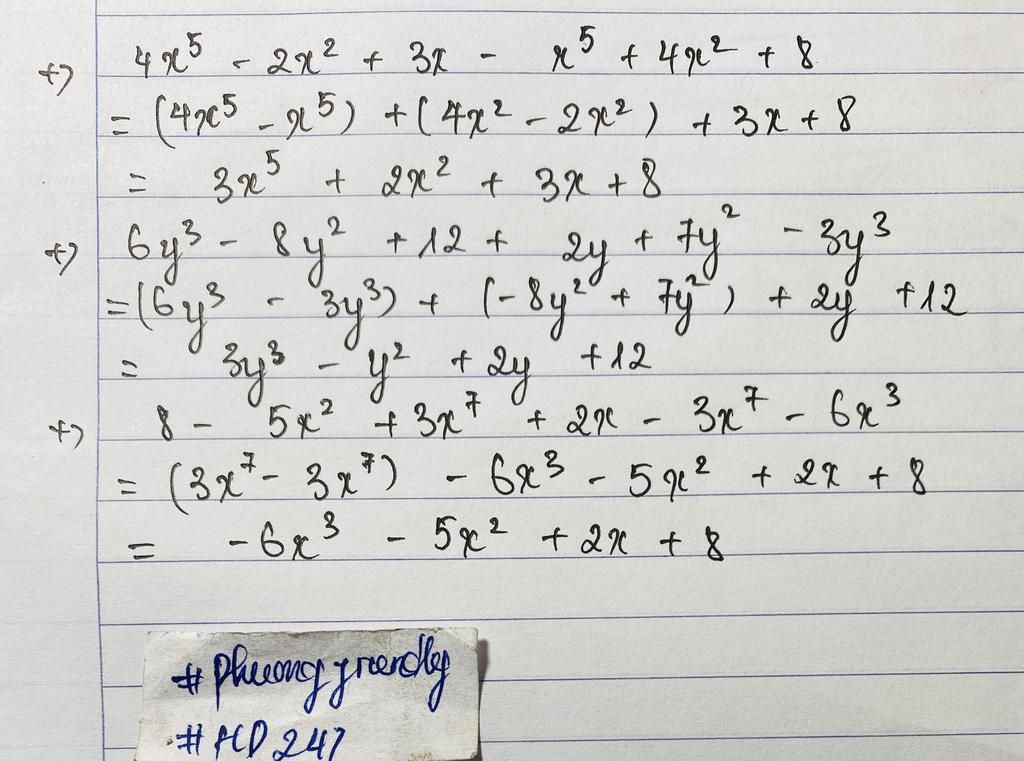 +) 4x⁵ - 2x² + 3x - x⁵ + 4x² + 8
= (4x⁵ - x⁵) + (4x² - 2x²) + 3x + 8
= 3x⁵ + 2x² + 3x + 8
+) 6y³ - 8y² + 12 + 2y + 7y² - 3y³
= (6y³ - 3y³) + (-8y² + 7y²) + 2y + 12
= 3y³ - y² + 2y + 12
+) 8 - 5x² + 3x⁷ + 2x - 3x⁷ - 6x³
= (3x⁷ - 3x⁷) - 6x³ - 5x² + 2x + 8
= -6x³ - 5x² + 2x + 8
#phuongfriendly
#HD247